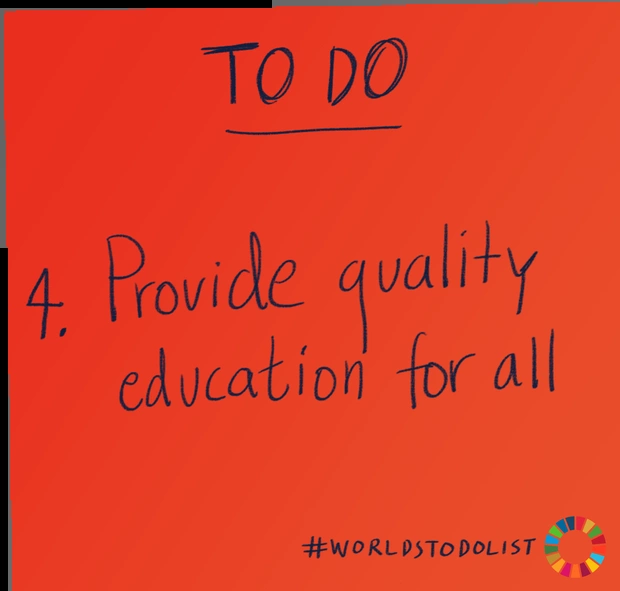 TO DO
4. Provide quality
education for all
#WORLDSTODOLIST